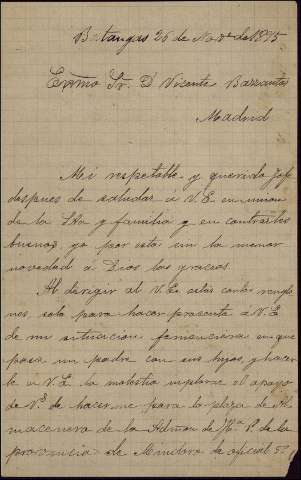 Batangas 26 de Nov.e de 1895
Excmo Sr. D Vicente Barrantes
Madrid
Mi respetable y querido Jefe
despues de saludar á V.E. en union
de la Sra y familia y en contrarles
buenos, yo por esta sin la menor
novedad á Dios las gracias.
Al dirigir al V.E. estas cortas renglo
nes, solo para hacer presente á V.E
de mi situacion fenanciera en que
pasa un padre con sus hijos, y hacer
le a V.E. la molestia inplorar el apoyo
de V.E. de hacerme para la plaza de Al
macenero de la Admon de Hda P. de la
provincia de Mindoro de oficial 5º